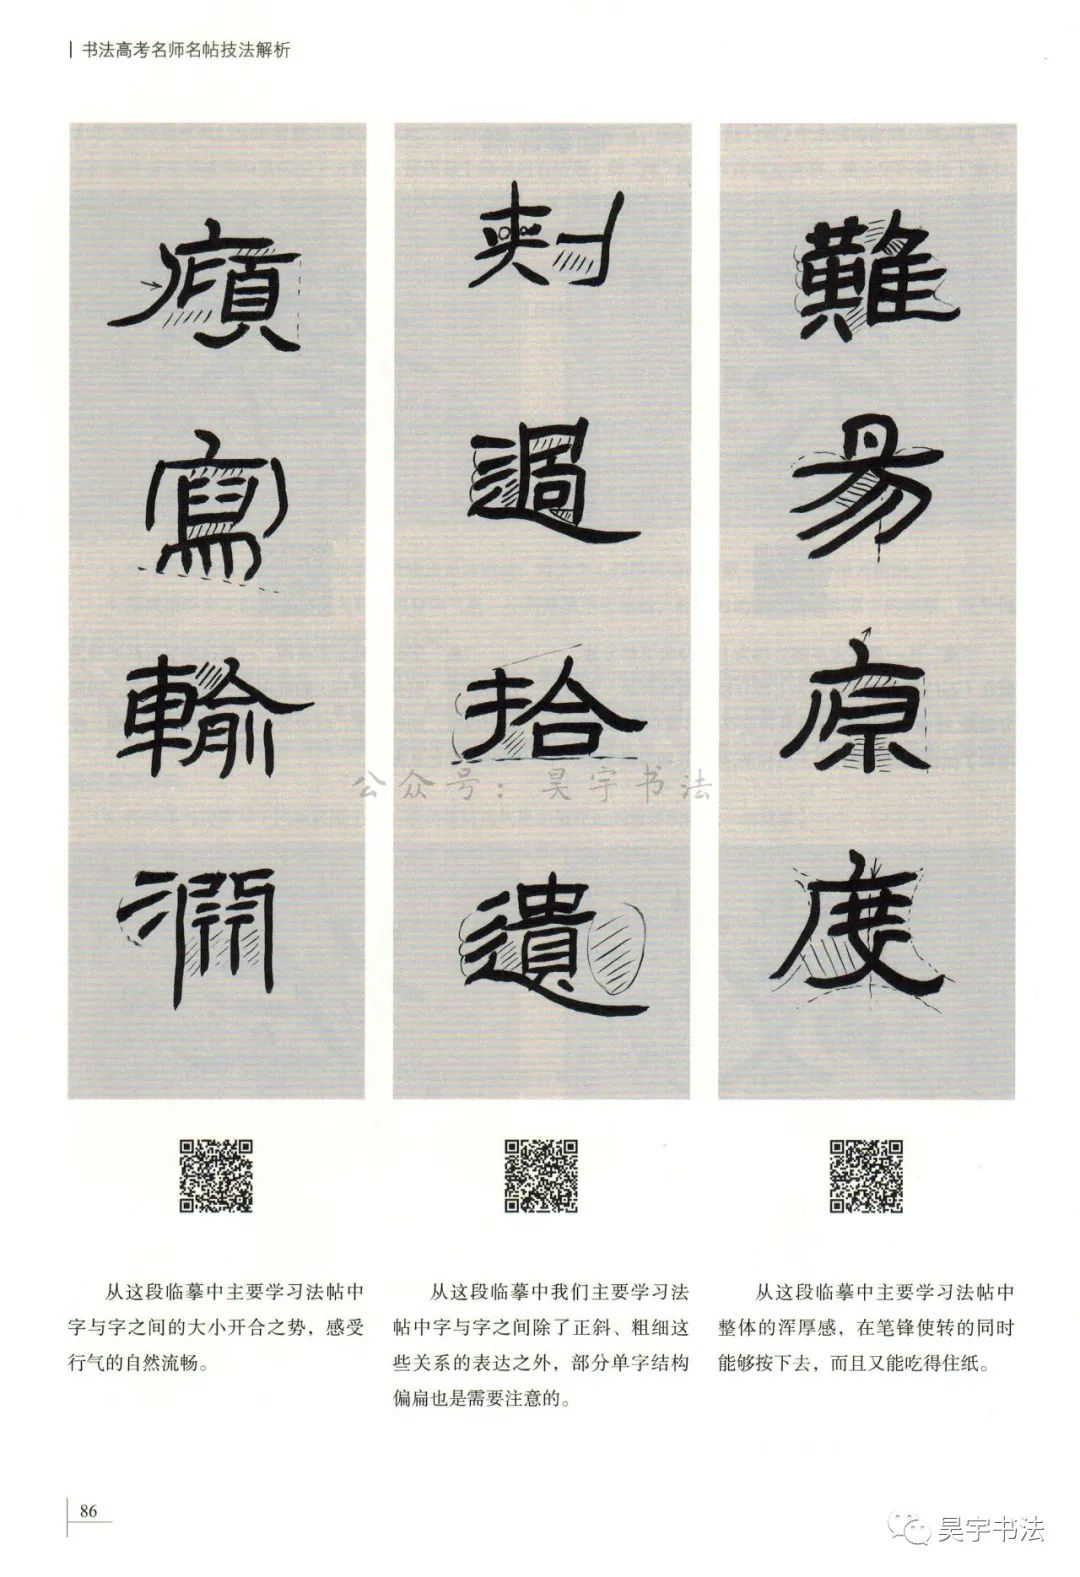 书法高考名师名帖技法解析
難易原度
刾過拾遺
廎寫輸淵
公众号：昊宇书法
从这段临摹中主要学习法帖中
字与字之间的大小开合之势，感受
行气的自然流畅。
从这段临摹中我们主要学习法
帖中字与字之间除了正斜、粗细这
些关系的表达之外，部分单字结构
偏扁也是需要注意的。
从这段临摹中主要学习法帖中
整体的浑厚感，在笔锋使转的同时
能够按下去，而且又能吃得住纸。
86
昊宇书法